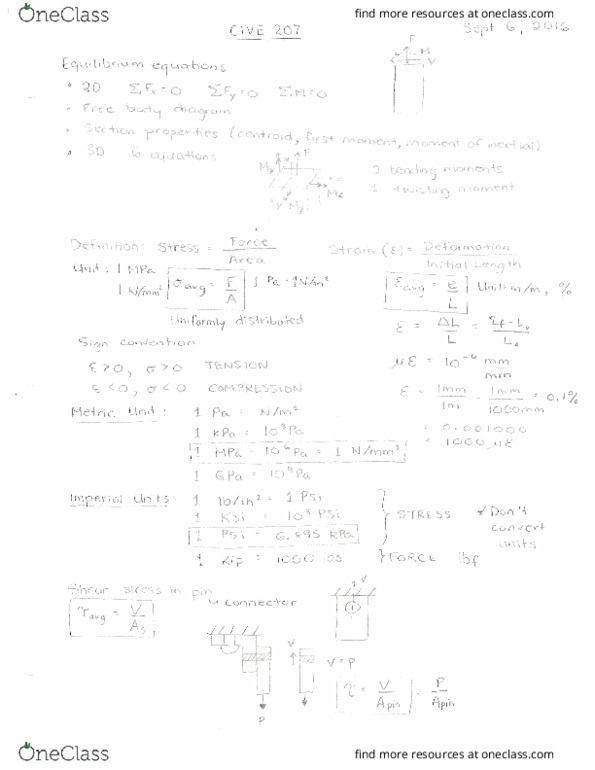 OneClass
find more resources at oneclass.com
CIVE 207
Sept 6, 2016
Equilibrium equations
F
M
V
• 2D ΣFx = 0 ΣFy = 0 ΣM = 0
• Free body diagram
• Section properties (centroid, first moment, moment of inertial)
• 3D 6 equations
F
Mx
Mz
My
2 bending moments
1 twisting moment
Definition: Stress = Force / Area
Strain (ε) = Deformation / Initial Length
Unit: 1 MPa
1 N/mm²
σavg = F/A
1 Pa = 1N/m²
Uniformly distributed
εavg = e/L
Unit: m/m, %
ε = ΔL/L = Lf-Lo/Lo
Sign convention
ε > 0, σ > 0 TENSION
ε < 0, σ < 0 COMPRESSION
µε = 10⁻⁶ mm/mm
ε = 1mm/1m = 1mm/1000mm = 0.1%
= 0.001000
= 1000 µε
Metric Unit:
1 Pa = N/m²
1 kPa = 10³Pa
1 MPa = 10⁶Pa = 1 N/mm²
1 GPa = 10⁹Pa
Imperial Units:
1 lb/in² = 1 Psi
1 Ksi = 10³ Psi
1 Psi = 6.895 kPa
1 Kip = 1000 lbs
STRESS
* Don't convert units
FORCE lbf
Shear stress in pin
↳ connector
τavg = V/As
V
V
V = P
P
τ = V/Apin = P/Apin
OneClass
find more resources at oneclass.com